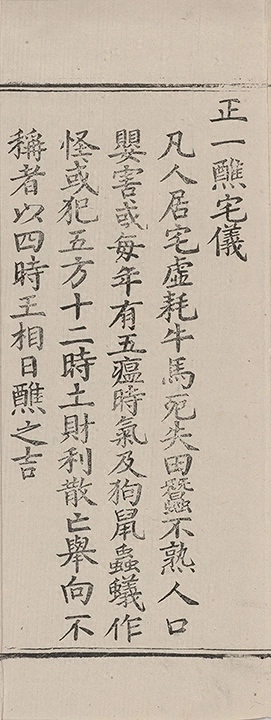 正一醮宅儀
凡人居宅虛耗牛馬死失田蠶不熟人口
嬰害或每年有五瘟時氣及狗鼠蟲蟻作
怪或犯五方十二時土財利散亡舉向不
稱者以四時王相日醮之吉